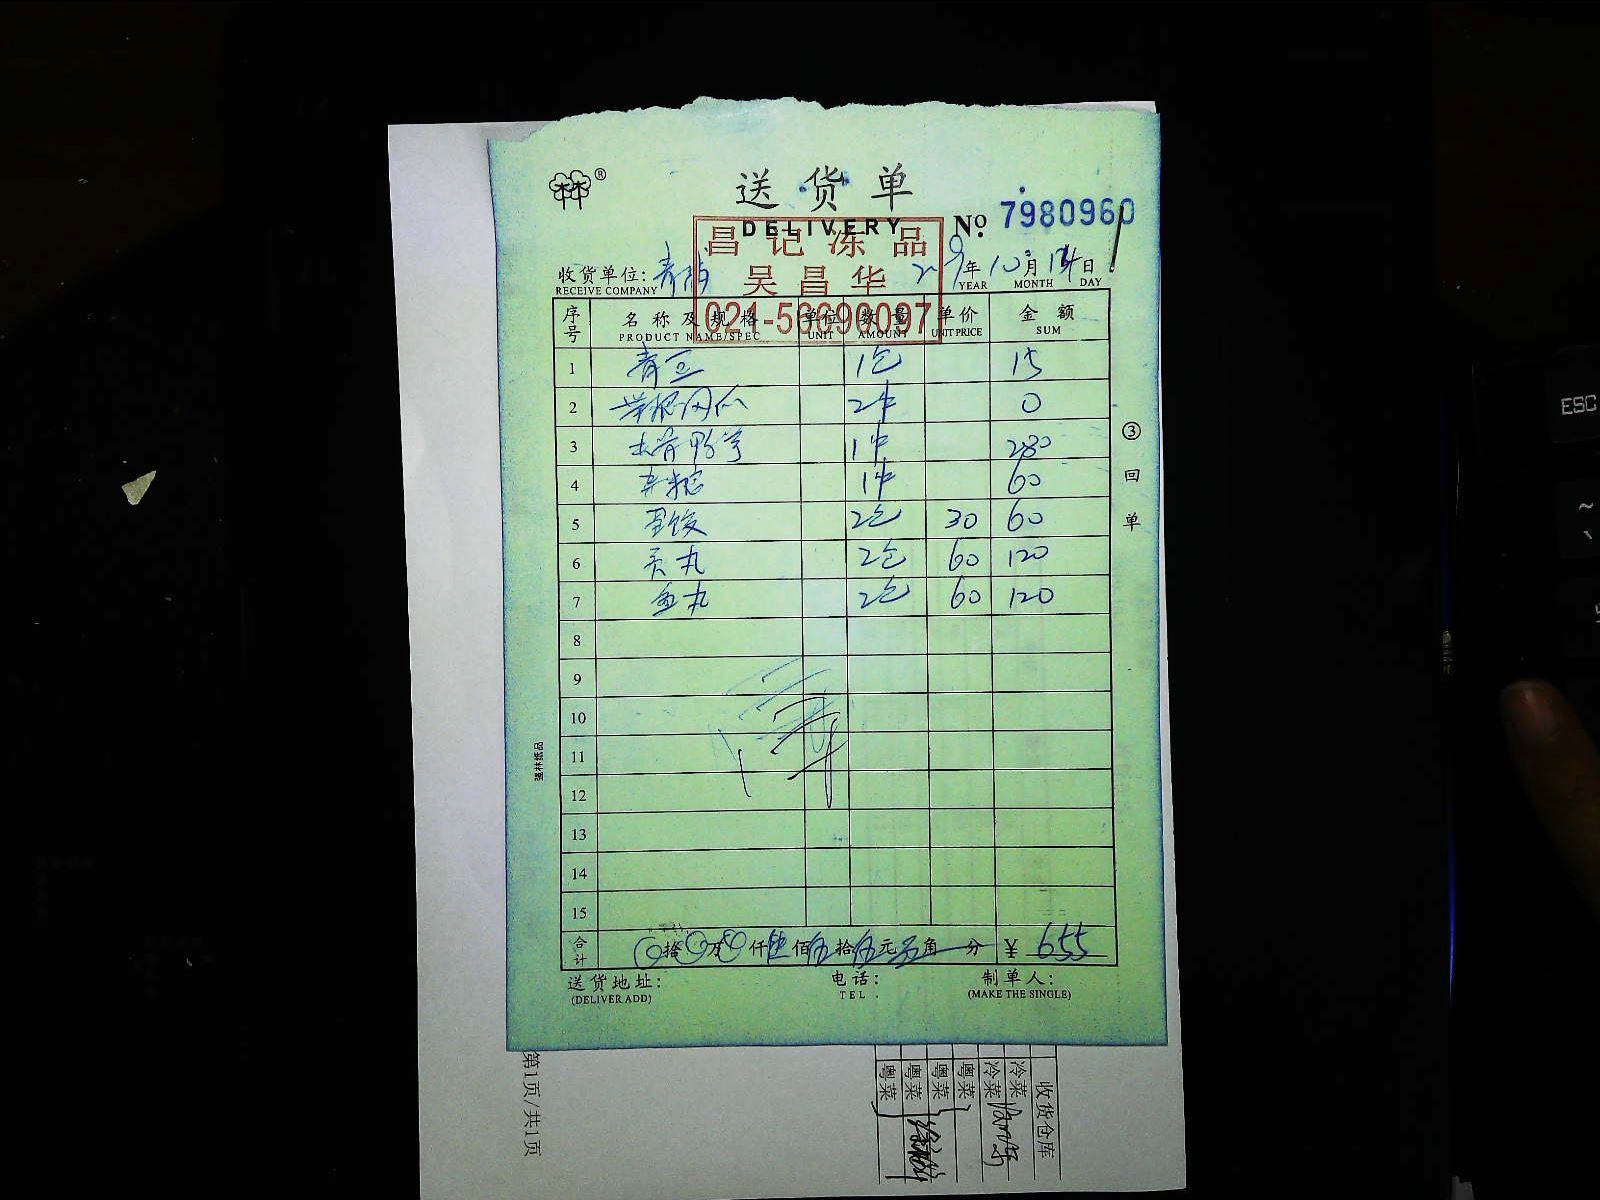 ® 送货单
DELIVERY № 7980960
昌记冻品
吴昌华
021-56690097
收货单位: 年 10 月 14 日
RECEIVE COMPANY YEAR MONTH DAY
序号 名称及规格 单位 数量 单价 金额
PRODUCT NAME/SPEC UNIT AMOUNT UNIT PRICE SUM
1 青豆 1包 15
2 2件 0
3 1件 280
4 1件 60
5 2包 30 60
6 贡丸 2包 60 120
7 鱼丸 2包 60 120
8
9
10
11
12
13
14
15
合计 拾 万 仟 陆 佰 伍 拾 伍 元 角 分 ¥ 655
送货地址: 电话: 制单人:
(DELIVER ADD) TEL. (MAKE THE SINGLE)
③ 回单
强林纸品
第1页/共1页
收货仓库
冷菜
冷菜
粤菜
粤菜
粤菜
粤菜
ESC